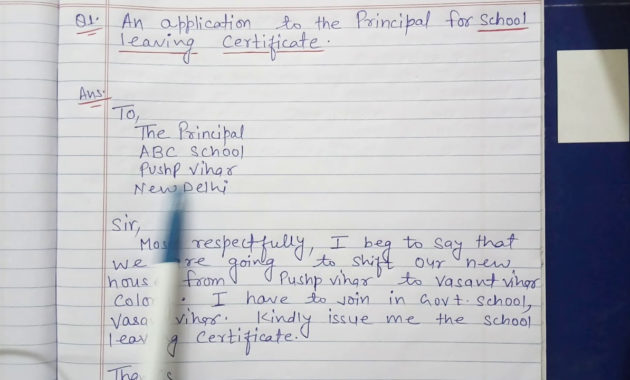 Q1. An application to the Principal for School
leaving Certificate.
Ans.
To,
The Principal
ABC School
Pushp Vihar
New Delhi
Sir,
respectfully, I beg to say that
we going to shift our new
from Pushp vihar to Vasant vihar
I have to Join in Govt. School,
vihar. Kindly issue me the School
Certificate.